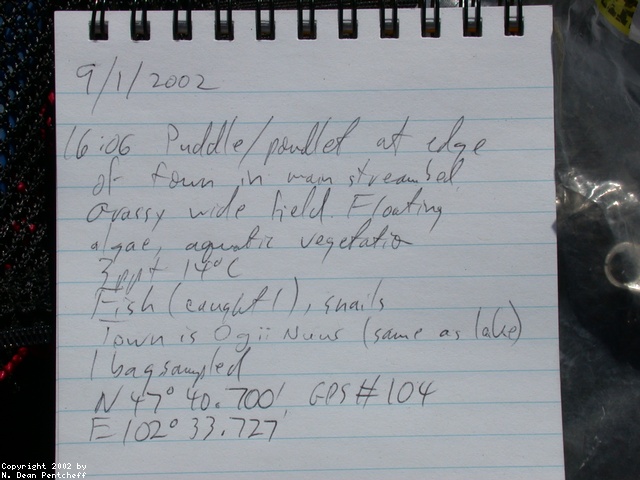 9/1/2002
16:06 Puddle/pondlet at edge
of town in main streambed.
Grassy wide field. Floating
algae, aquatic vegetation
3ppt 14°C
Fish (caught 1), snails
Town is Ogii Nuus (same as lake)
1 bag sampled
N 47° 40.700', GPS#104
E 102° 33.727
Copyright 2002 by
N. Dean Pentcheff